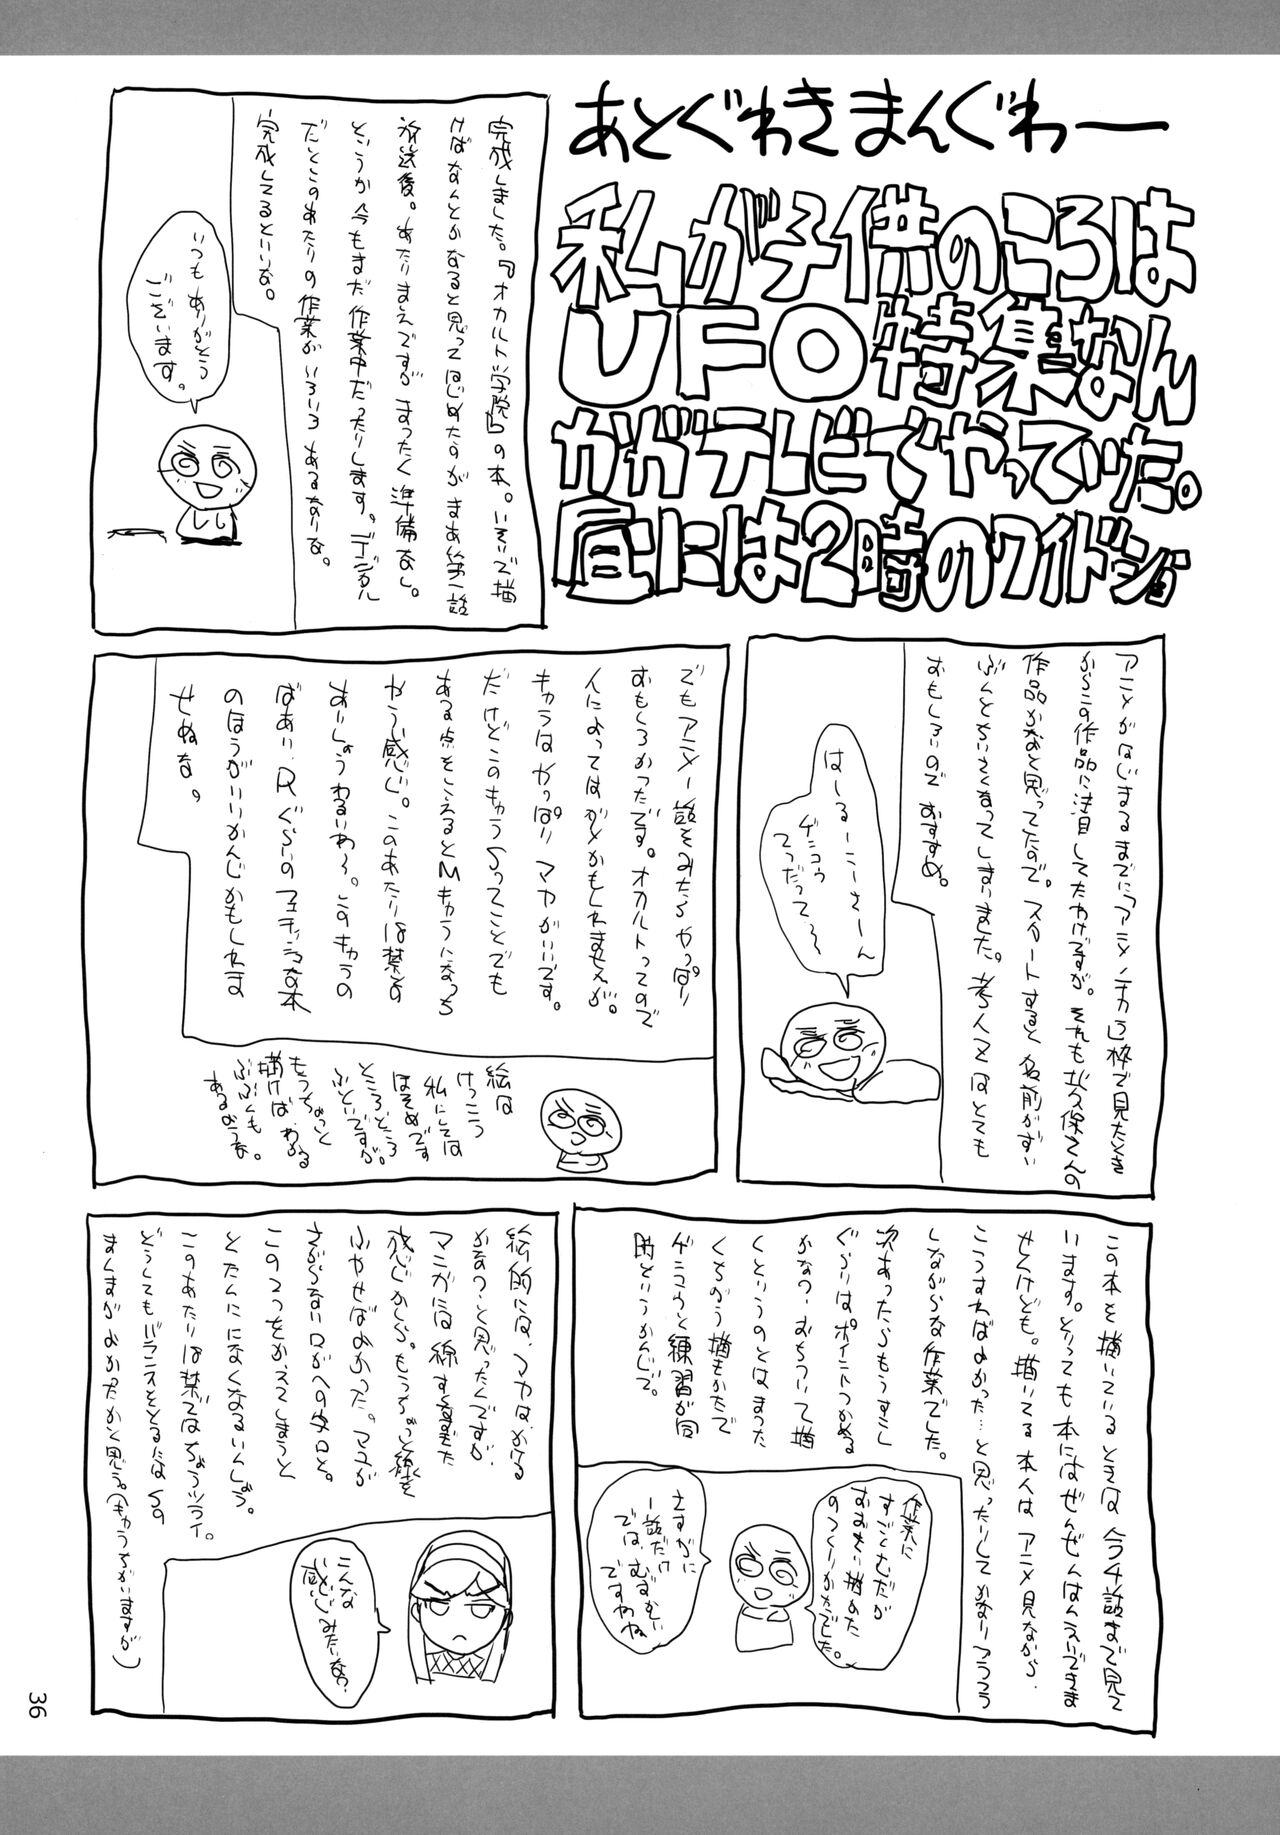 あとぐわきまんぐわー
私が子供のころは
UFO特集なん
かがテレビでやっていた。
昼には2時のワイドショ
完成しました。『オカルト学院』の本。いそいで描
けばなんとかなると思ってはじめたのがまあ第一話
放送後。あたりまえですがまったく準備なし。
というか今もまだ作業中だったりします。デジタル
だとこのあたりの作業がいろいろあるなりな。
完成してるといいな。
いつもありがとう
ございます。
アニメがはじまるまでに「アニメノチカラ」枠で見たとき
からこの作品に注目してたわけですが。それも
作品かなと思ってたので。スタートすると名前がずい
ぶんとちいさくなってしまいました。考人
とても
おもしろいのでおすすめ。
はしるーこーさーん
ゲンコウ
てつだって〜
でもアニメ一話をみたらやっぱり
おもしろかったです。オカルトってので
人によってはダメかもしれませんが。
キャラはやっぱりマヤがいいです。
だけどこのキャラSってことでも
ある点をこえるとMキャラになっち
ゃう感じ。このあたりは禁との
あいしょうわるいわ〜。このキャラの
ばあい、Rぐらいのフェチックな本
のほうがいいかんじかもしれま
せぬな。
絵は
けっこう
私にしては
ほそめです
ところどころ
ふといですが。
もうちょっと
描けば、わかる
ぶぶんも
あるような。
この本を描いているときは今4話まで見て
います。とっても本にはぜんぜんはんえいできま
せんけども。描いてる本人はアニメ見ながら、
こうすればよかった…と思ったりしてかなりアウアウ
しながらな作業でした。
次あったらもうすこし
ぐらいはポイントつかめる
かなっ…おちついて描
くというのとはまった
くちがう描きかたで
ゲンコウと練習が同
時というかんじで。
作業に
すごくむだが
おおきい描めた
のつくりかたでした。
さすがに
一話だけ
ではむずかしい
ですわね
絵的には、マヤは、かなる
かなっ…と思ったんですが、
マンガには線すくなすぎた
感じかしら。もうちょっと線を
ふやせばよかった。マユが
さがらないロがへの字口と。
この2つをかえてしまうと
とたんににてなくなるいんしょう。
このあたりは禁ではちょうツライ。
どうしてもバランスをとるにはSの
ましまがよかったかと思う。(キャラちがいますが)
こんな
感じみたいな?
36